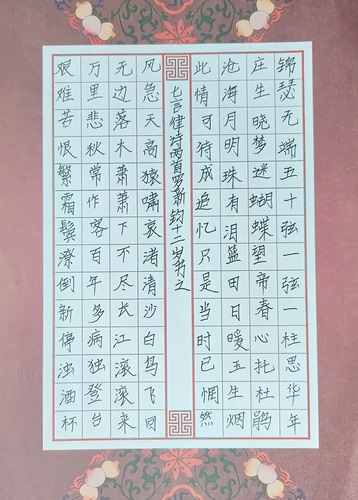 锦瑟无端五十弦一弦一柱思华年
庄生晓梦迷蝴蝶望帝春心托杜鹃
沧海月明珠有泪篮田日暖玉生烟
此情可待成追忆只是当时已惘然
七言律诗两首罗新钧十二岁书之
风急天高猿啸哀渚清沙白鸟飞回
无边落木萧萧下不尽长江滚滚来
万里悲秋常作客百年多病独登台
艰难苦恨繁霜鬓潦倒新停浊酒杯